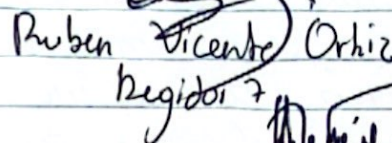 Ruben Vicente Orhiz
Regidor 7